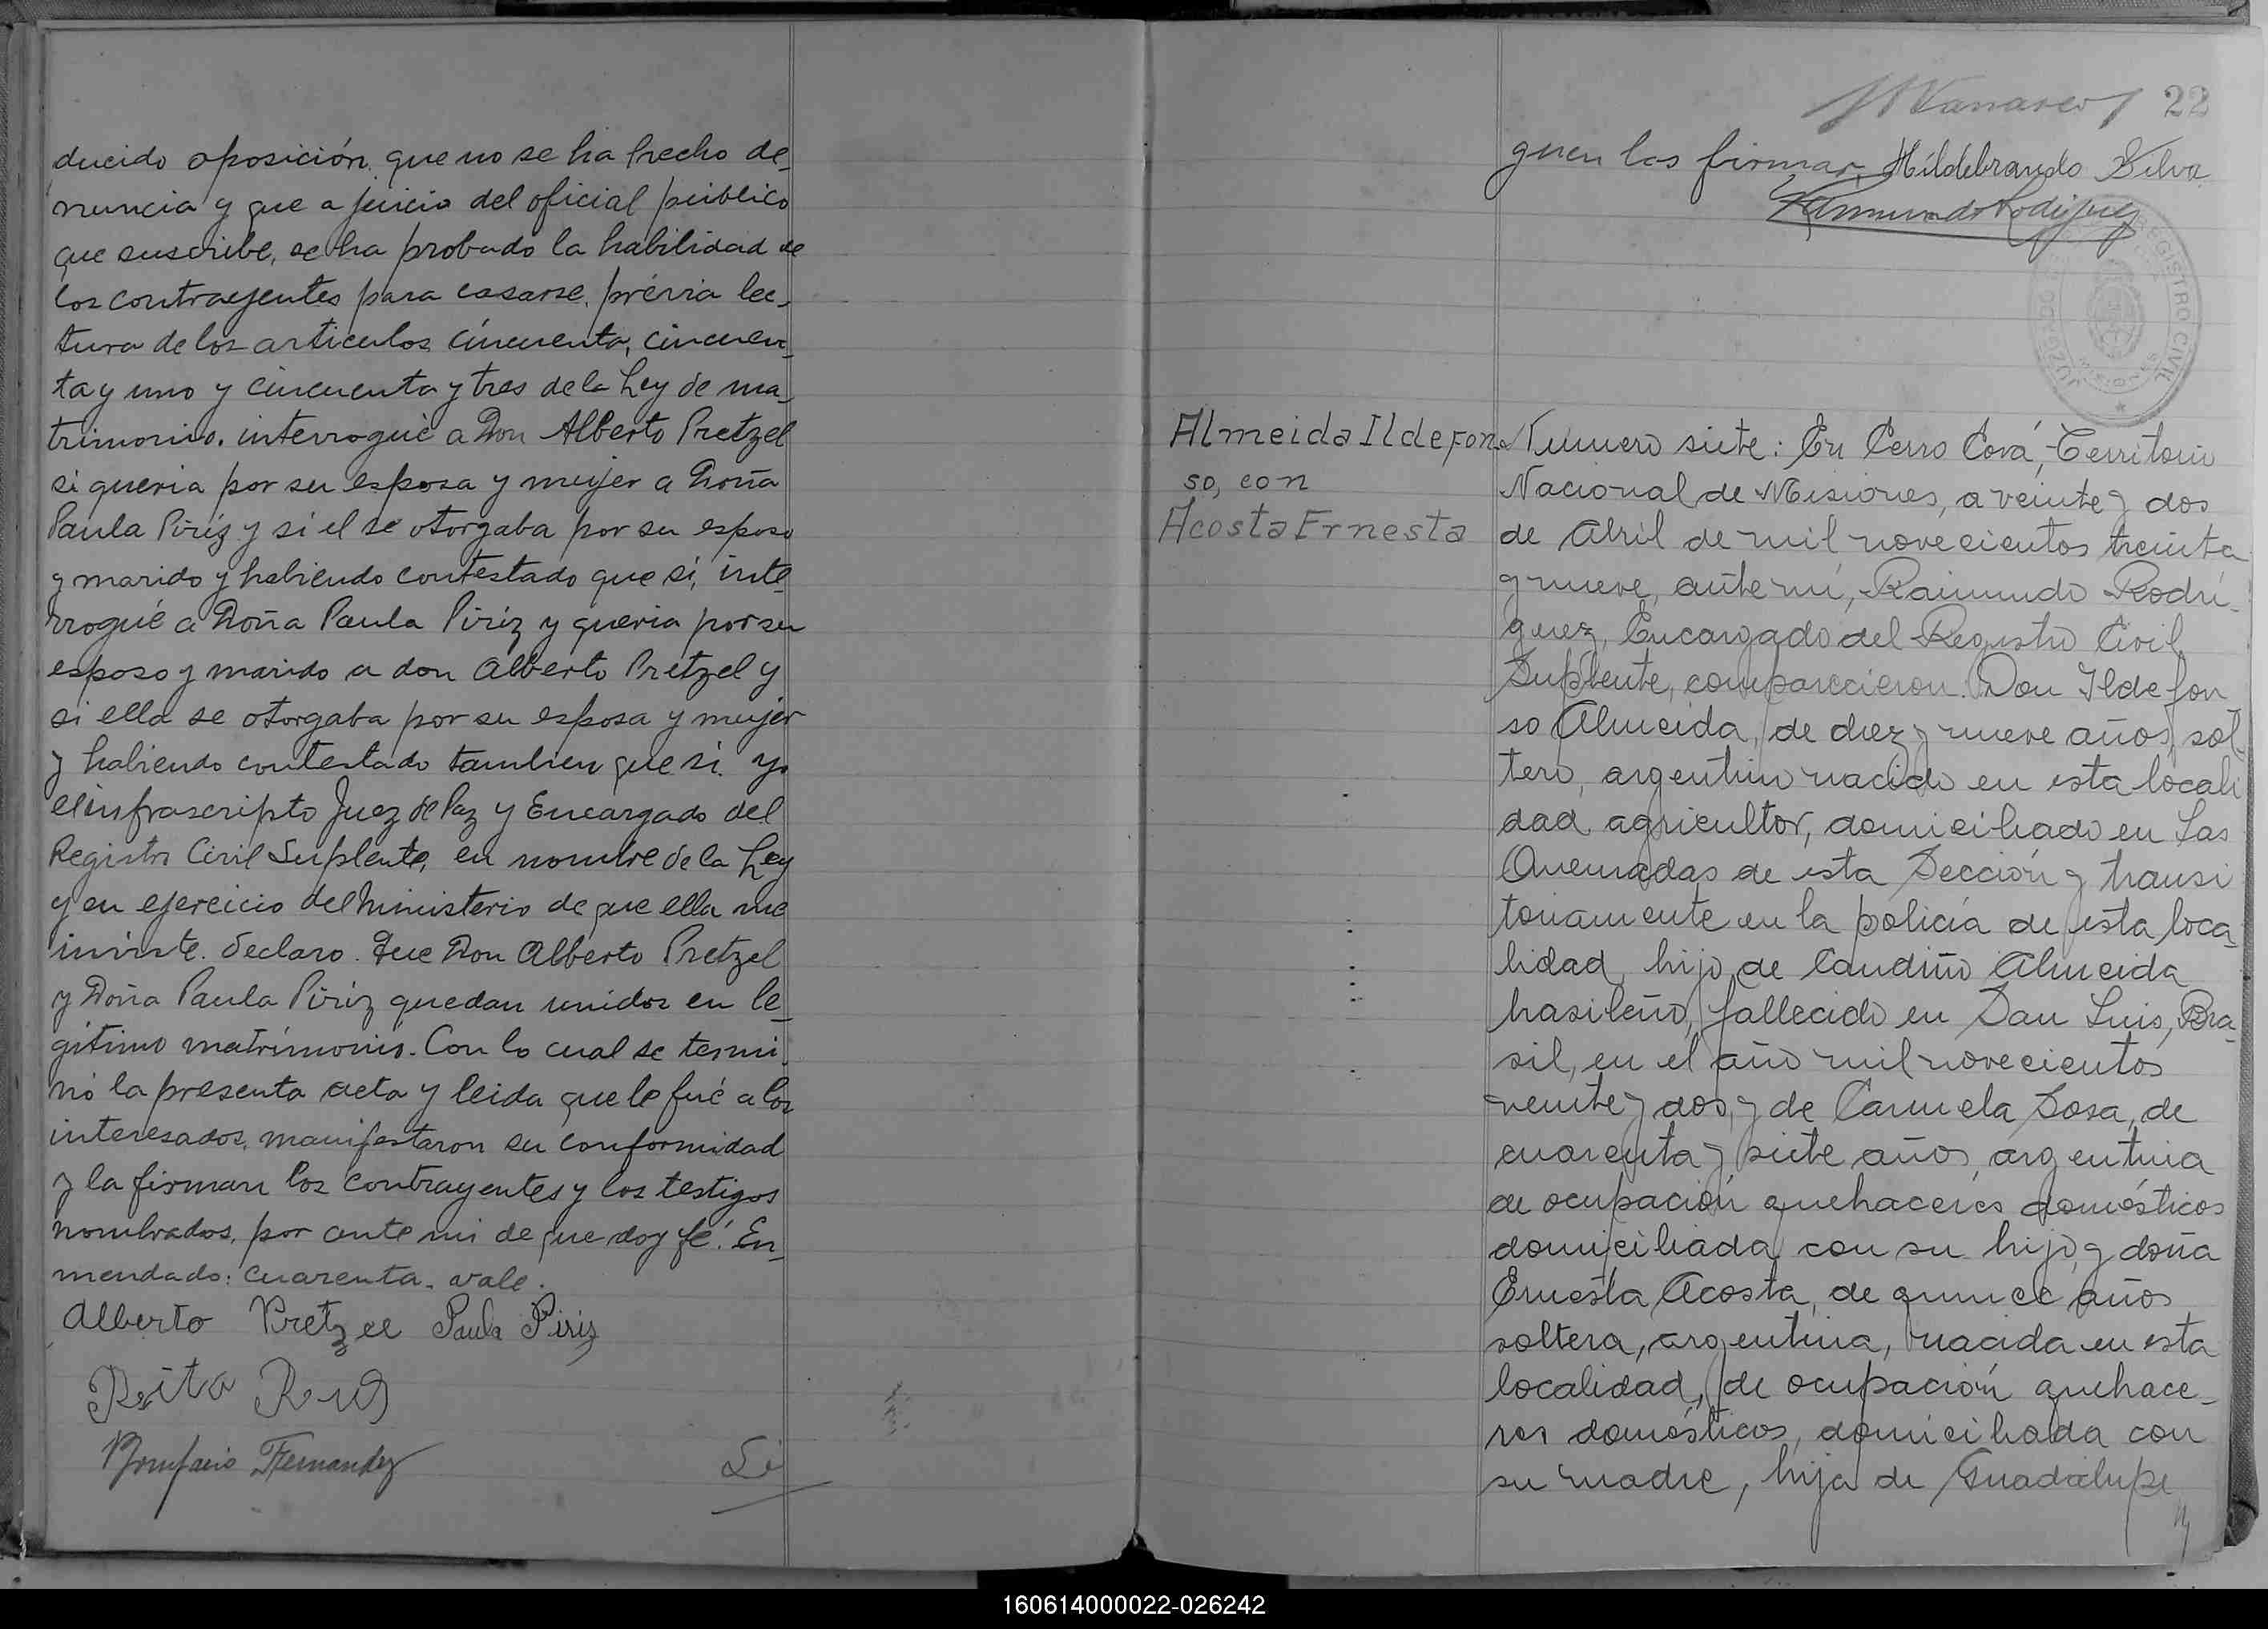 ducido oposición, que no se ha hecho de_
nuncia y que a juicio del oficial público
que suscribe, se ha probado la habilidad de
los contrayentes para casarse, prévia lec_
tura de los articulos cincuenta, cincuen_
ta y uno y cincuenta y tres de la Ley de ma_
trimonio. interrogué a Don Alberto Pretzel
si queria por su esposa y mujer a Doña
Paula Piriz y si el se otorgaba por su esposo
y marido y habiendo contestado que si, inte_
rrogué a Doña Paula Piriz y queria por su
esposo y marido a don Alberto Pretzel y
si ella se otorgaba por su esposa y mujer
y habiendo contestado tambien que si. yo
el infrascripto Juez de Paz y Encargado del
Registro Civil Suplente, en nombre de la Ley
y en ejercicio del Ministerio de que ella me
inviste. declaro. Que Don Alberto Pretzel
y Doña Paula Piriz quedan unidos en le_
gitimo matrimonio. Con lo cual se termi_
nó la presenta acta y leida que le fué a los
interesados, manifestaron su conformidad
y la firman los contrayentes y los testigos
nombrados, por ante mi de que doy fé. En_
mendado: cuarenta. vale.
Alberto Pretzel Paula Piriz
Rita
Bonifacio Fernandez
22
guen las firmar, Hildebrando Silva
Raimundo Rodriguez
REGISTRO CIVIL
MISIONES
JUZGADO DE
Almeida Ildefon_
so, con
Acosta Ernesta
Numero siete: En Cerro Corá, Territorio
Nacional de Misiones, a veinte y dos
de Abril de mil novecientos treinta
y nueve, ante mi, Raimundo Rodri_
guez, Encargado del Registro Civil
Suplente, comparecieron: Don Ildefon
so Almeida, de diez y nueve años, sol_
tero, argentino nacido en esta locali
dad, agricultor, domiciliado en Las
Quemadas de esta Sección y transi
toriamente en la policía de esta loca_
lidad, hijo de Candino Almeida
brasileño, fallecido en San Luis, Bra_
sil, en el año mil novecientos
veinte y dos, y de Carmela Sosa, de
cuarenta y siete años, argentina
de ocupación quehaceres domésticos
domiciliada con su hijo, y doña
Ernesta Acosta, de quince años
soltera, argentina, nacida en esta
localidad, de ocupación quehace_
res domésticos, domiciliada con
su madre, hija de Guadalupe
160614000022-026242